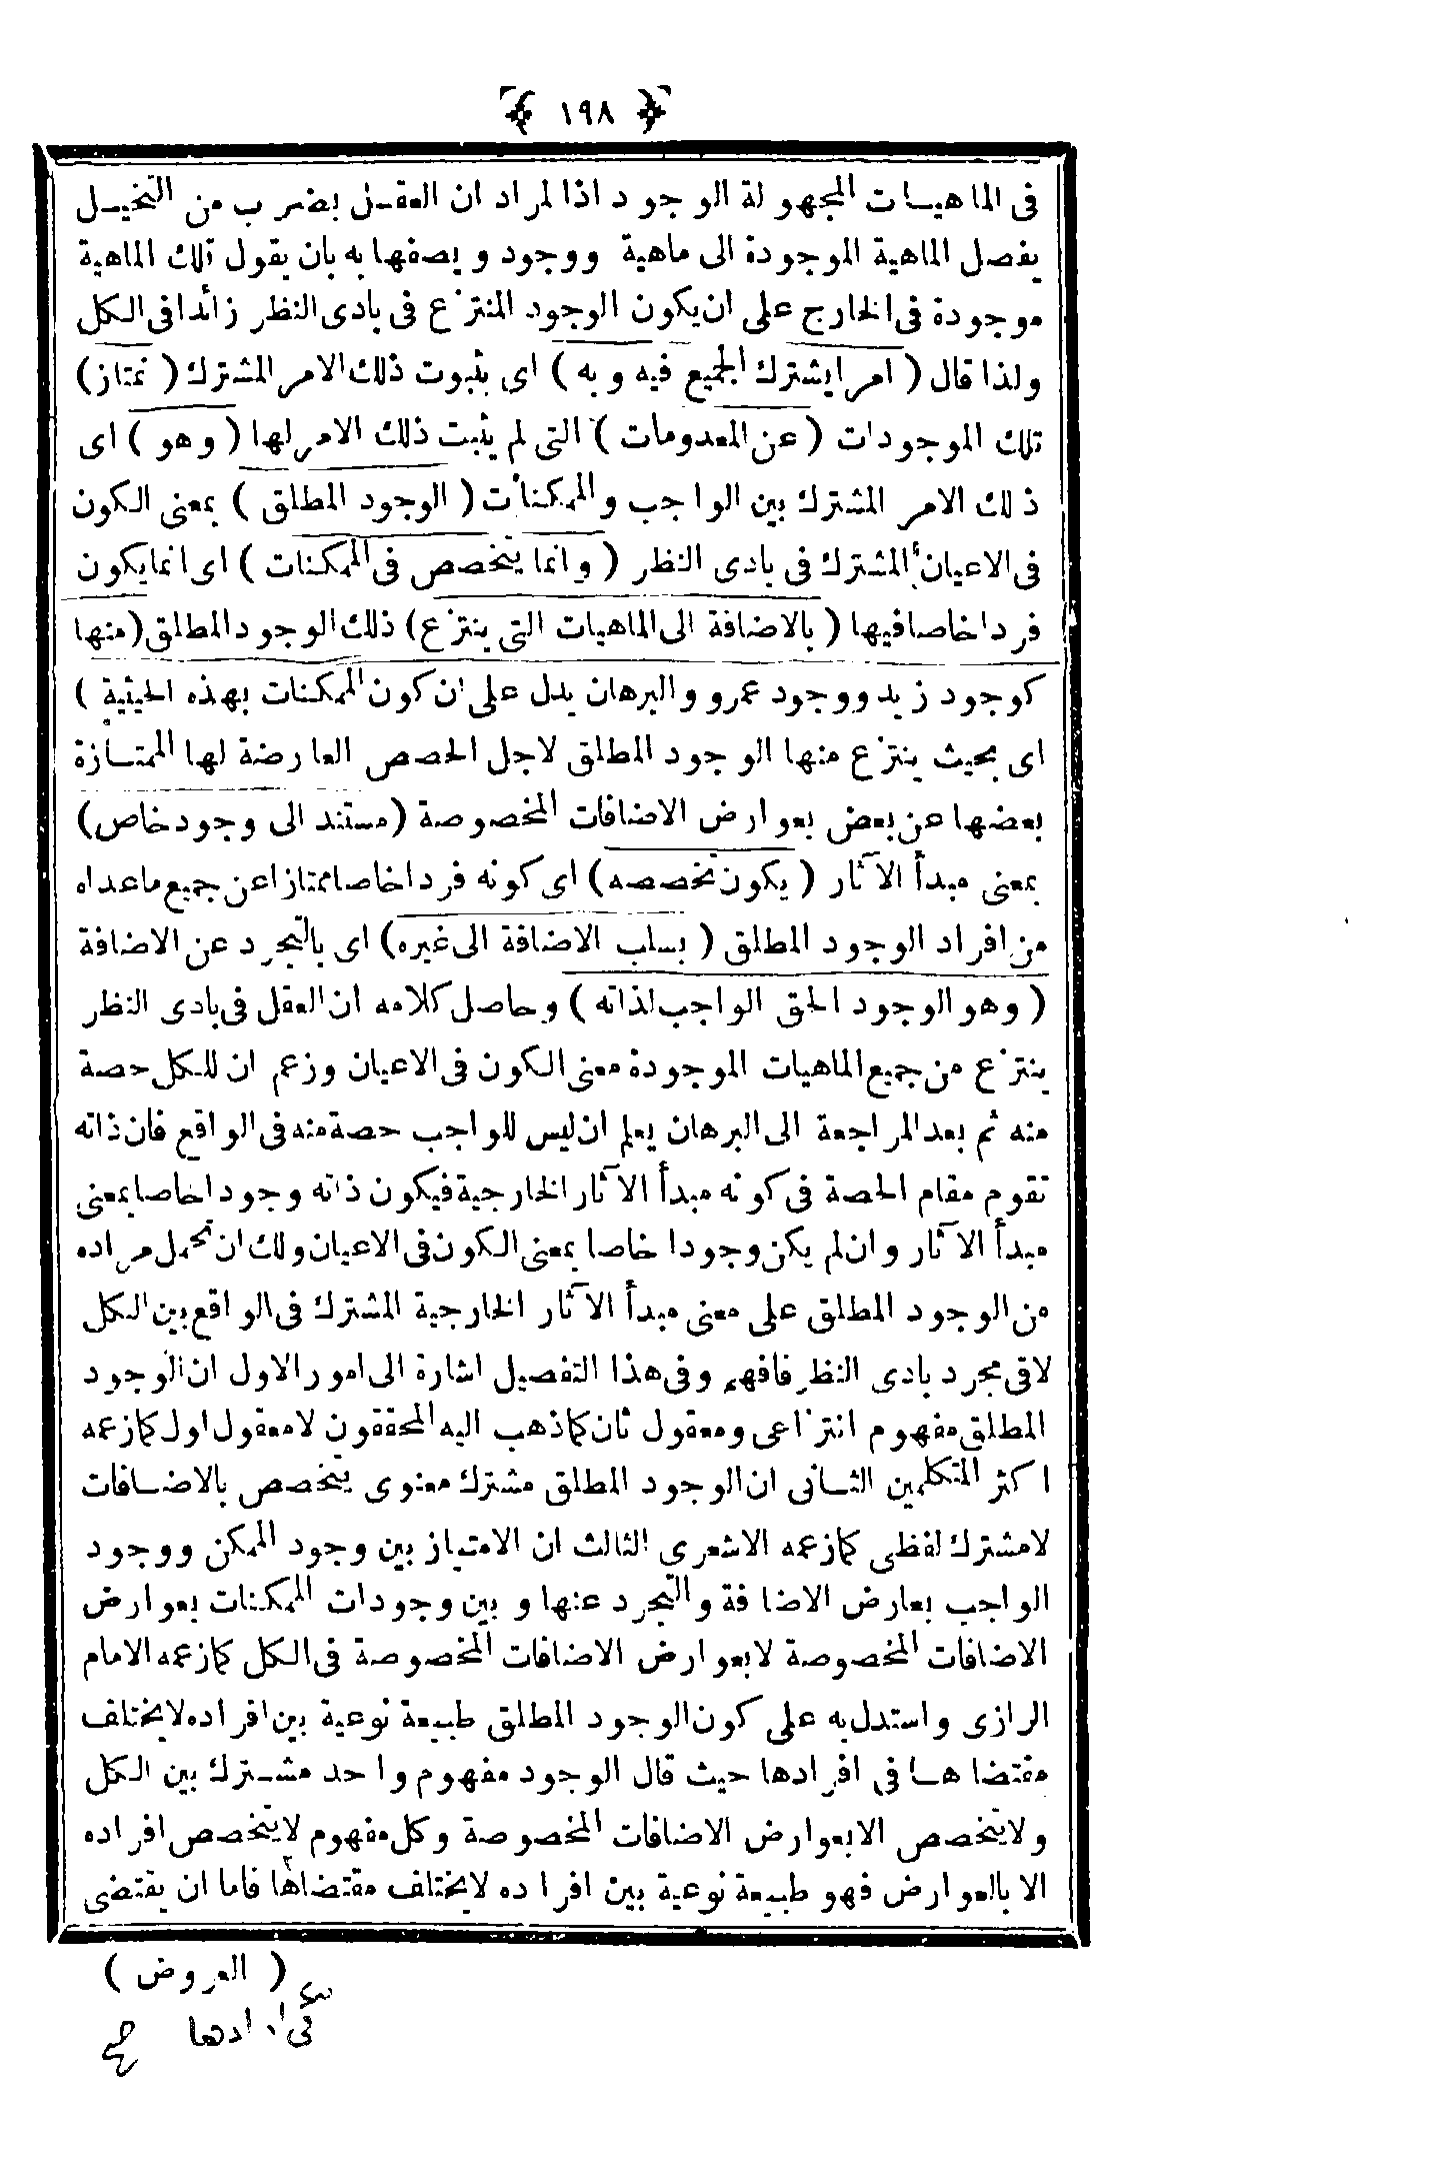 ﴿ ١٩٨ ﴾
فى الماهيات المجهولة الوجود اذا لمراد ان العقل بضرب من التخيل
يفصل الماهية الموجودة الى ماهية ووجود ويصفها به بان يقول تلك الماهية
موجودة فى الخارج على ان يكون الوجود المنتزع فى بادى النظر زائدا فى الكل
ولذا قال ( امرا يشترك الجميع فيه وبه ) اى بثبوت ذلك الامر المشترك ( تمتاز )
تلك الموجودات ( عن المعدومات ) التى لم يثبت ذلك الامر لها ( وهو ) اى
ذلك الامر المشترك بين الواجب والممكنات ( الوجود المطلق ) بمعنى الكون
فى الاعيان المشترك فى بادى النظر ( وانما يتخصص فى الممكنات ) اى انما يكون
فردا خاصا فيها ( بالاضافة الى الماهيات التى ينتزع ) ذلك الوجود المطلق ( منها
كوجود زيد ووجود عمرو والبرهان يدل على ان كون الممكنات بهذه الحيثية )
اى بحيث ينتزع منها الوجود المطلق لاجل الحصص العارضة لها الممتازة
بعضها عن بعض بعوارض الاضافات المخصوصة ( مستند الى وجود خاص )
بمعنى مبدأ الآثار ( يكون تخصصه ) اى كونه فردا خاصا ممتازا عن جميع ماعداه
من افراد الوجود المطلق ( بسلب الاضافة الى غيره ) اى بالتجرد عن الاضافة
( وهو الوجود الحق الواجب لذاته ) وحاصل كلامه ان العقل فى بادى النظر
ينتزع من جميع الماهيات الموجودة معنى الكون فى الاعيان وزعم ان للكل حصة
منه ثم بعد المراجعة الى البرهان يعلم ان ليس للواجب حصة منه فى الواقع فان ذاته
تقوم مقام الحصة فى كونه مبدأ الآثار الخارجية فيكون ذاته وجودا خاصا بمعنى
مبدأ الآثار وان لم يكن وجودا خاصا بمعنى الكون فى الاعيان ولك ان تحمل مراده
من الوجود المطلق على معنى مبدأ الآثار الخارجية المشترك فى الواقع بين الكل
لا فى مجرد بادى النظر فافهم وفى هذا التفصيل اشارة الى امور الاول ان الوجود
المطلق مفهوم انتزاعى ومعقول ثان كما ذهب اليه المحققون لا معقول اول كما زعمه
اكثر المتكلمين الثانى ان الوجود المطلق مشترك معنوى يتخصص بالاضافات
لا مشترك لفظى كما زعمه الاشعرى الثالث ان الامتياز بين وجود الممكن ووجود
الواجب بعارض الاضافة والتجرد عنها وبين وجودات الممكنات بعوارض
الاضافات المخصوصة لا بعوارض الاضافات المخصوصة فى الكل كما زعمه الامام
الرازى واستدل به على كون الوجود المطلق طبيعة نوعية بين افراده لا يختلف
مقتضاها فى افرادها حيث قال الوجود مفهوم واحد مشترك بين الكل
ولا يتخصص الا بعوارض الاضافات المخصوصة وكل مفهوم لا يتخصص افراده
الا بالعوارض فهو طبيعة نوعية بين افراده لا يختلف مقتضاها فاما ان يقتضى
( العروض )